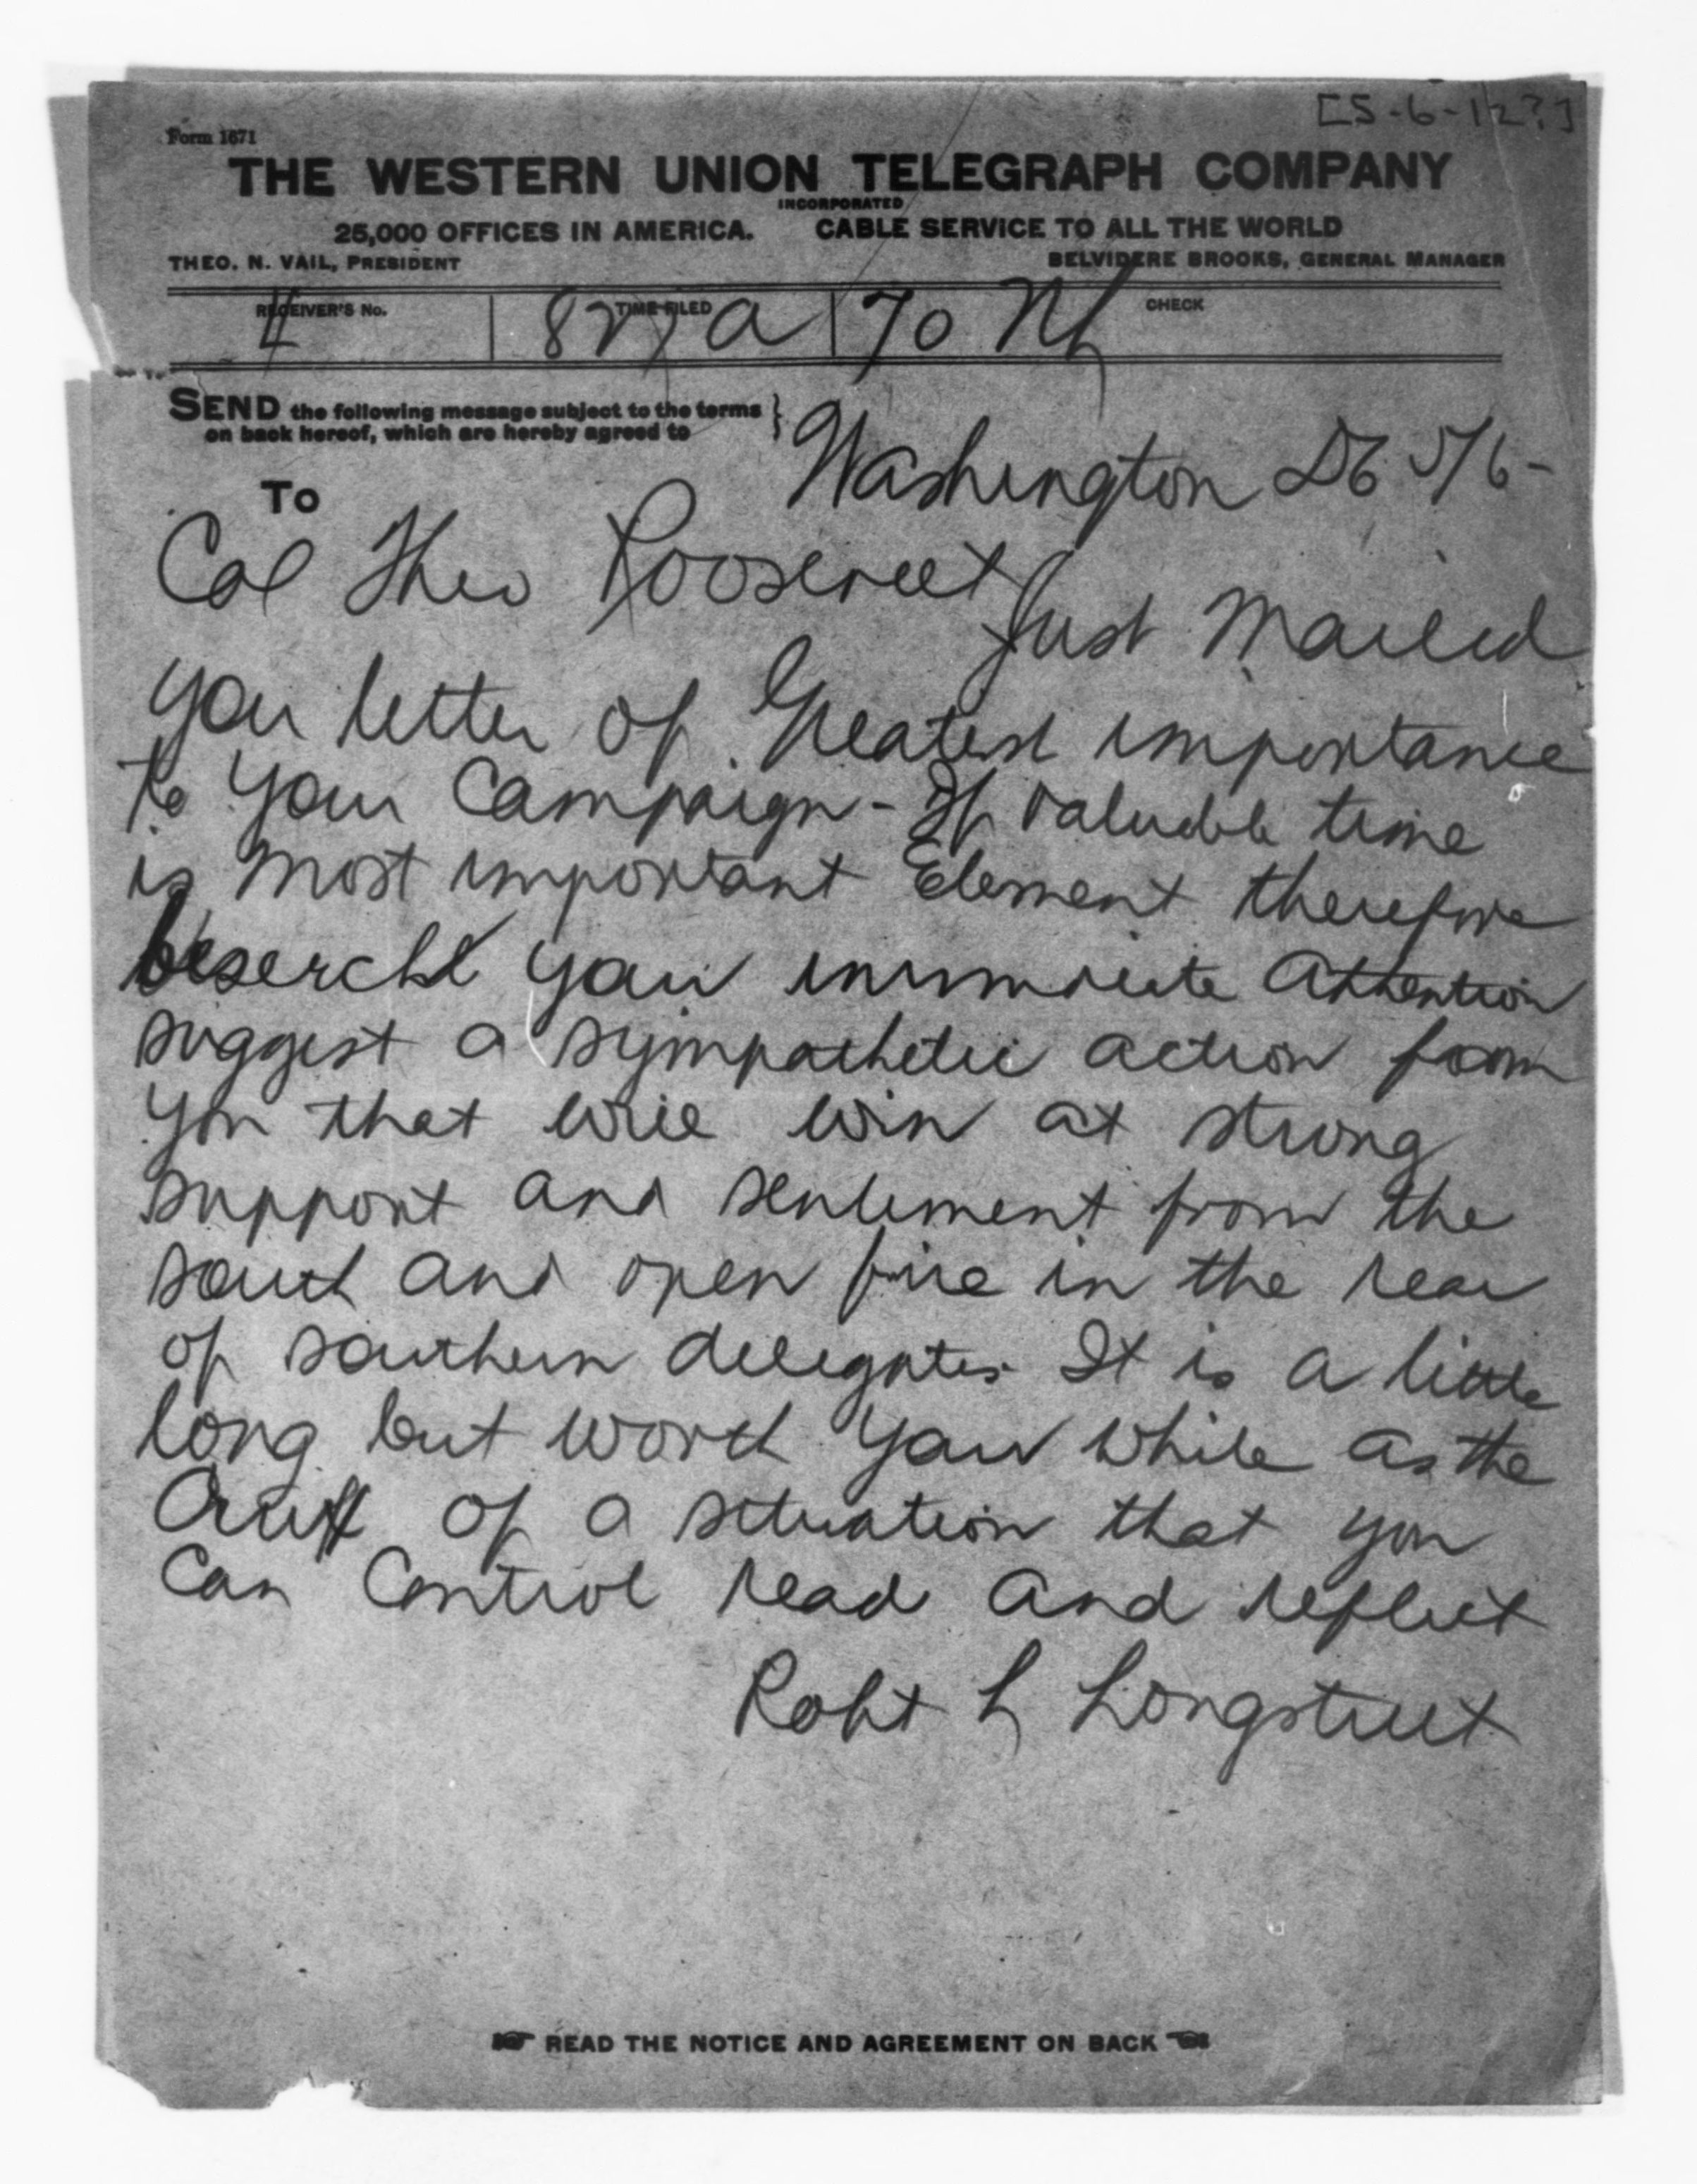 [5-6-12?]
Form 1671
THE WESTERN UNION TELEGRAPH COMPANY
INCORPORATED
25,000 OFFICES IN AMERICA. CABLE SERVICE TO ALL THE WORLD
THEO. N. VAIL, PRESIDENT BELVIDERE BROOKS, GENERAL MANAGER
RECEIVER'S No. TIME FILED CHECK
827 a 70 Nh
SEND the following message subject to the terms
on back hereof, which are hereby agreed to
Washington DC 5/6-
To
Col Theo Roosevelt
Just Mailed
you letter of Greatest importance
to your Campaign - If valuable time
is most important Element therefore
your immediate Attention
suggest a sympathetic action from
you that will win at strong
support and sentiment from the
south and open fire in the rear
of southern delegates. It is a little
long but worth your while as the
of a situation that you
can Control read and reflect
Robt L Longstreet
READ THE NOTICE AND AGREEMENT ON BACK